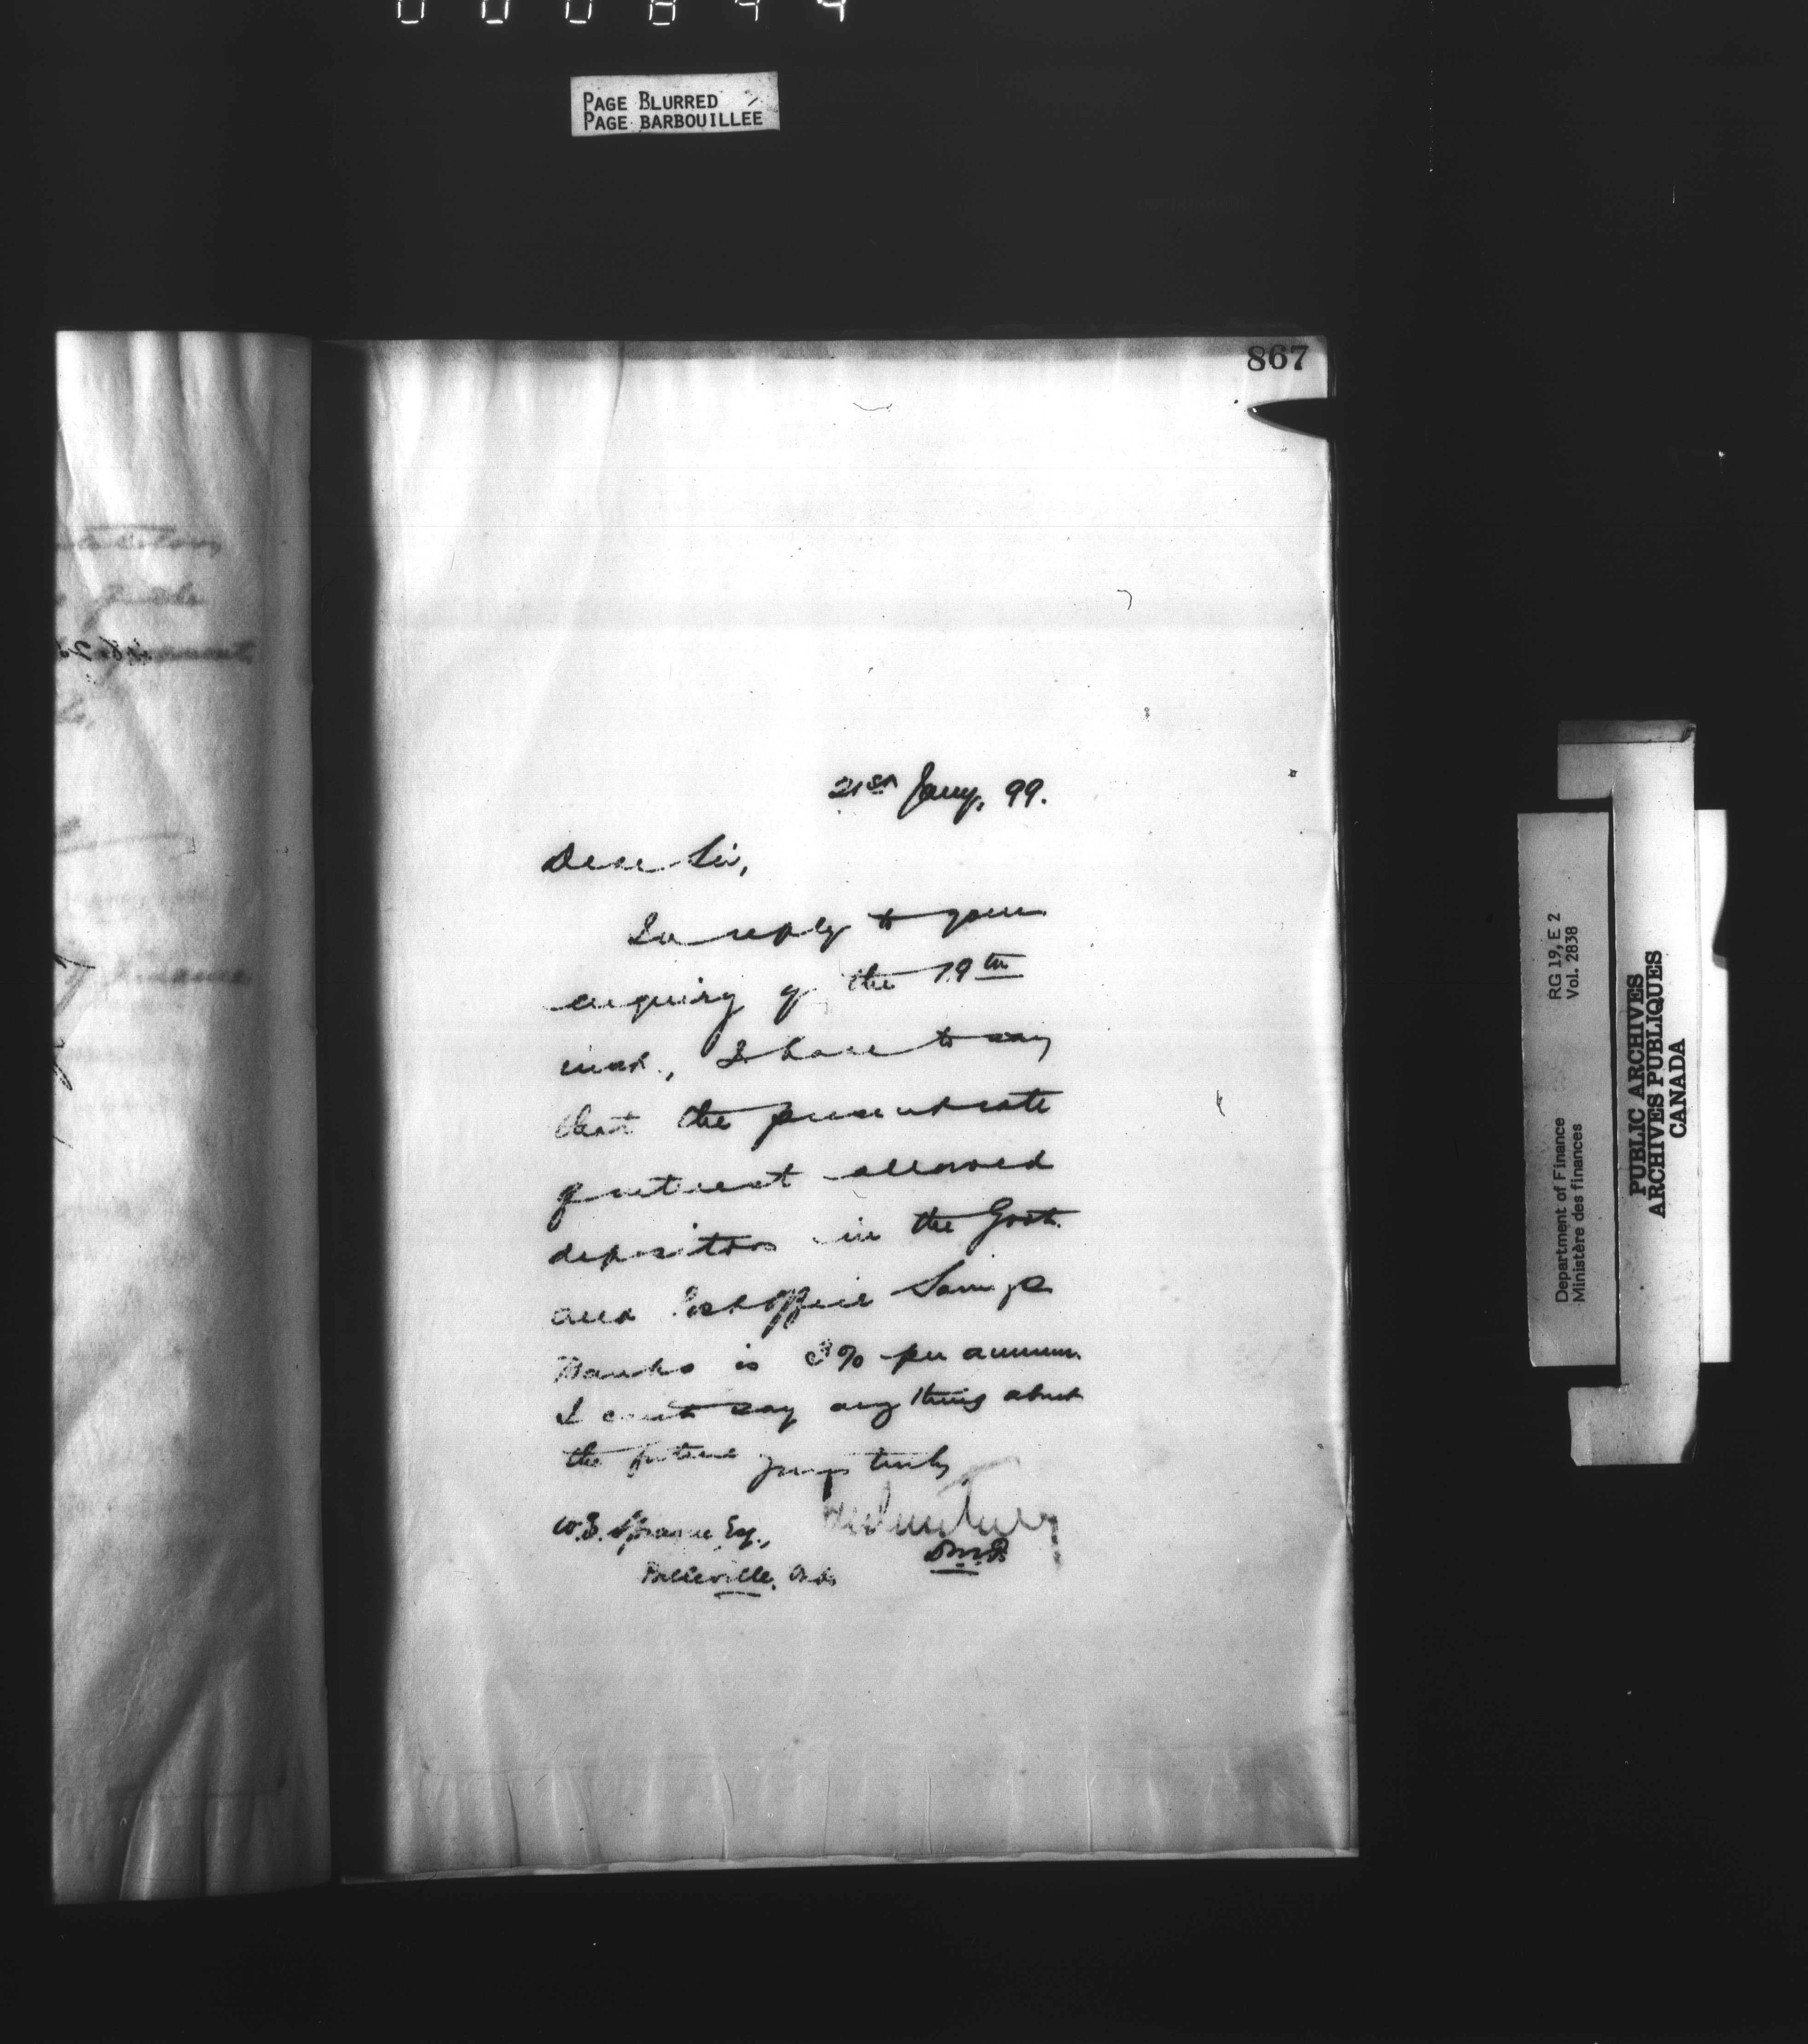 PAGE BLURRED
PAGE BARBOUILLEE
867
21st Jany, 99.
Dear Sir,
In reply to your
enquiry of the 19th
inst., I have to say
that the present rate
of interest allowed
depositors in the Govt.
and Post Office Savings
Banks is 3% per annum.
I can't say anything about
the future yours truly
W.B. Esq.,
D.M.F.
Belleville, Ont.
Finance
RG 19, E 2
Vol. 2838
Department of Finance
Ministère des finances
PUBLIC ARCHIVES
ARCHIVES PUBLIQUES
CANADA